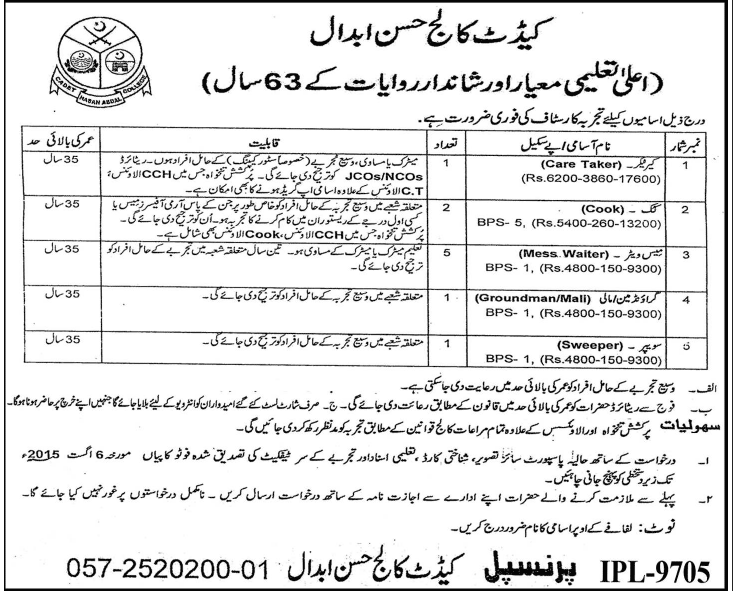 کیڈٹ کالج حسن ابدال
(اعلیٰ تعلیمی معیار اور شاندار روایات کے 63 سال)
CADET COLLEGE
HASAN ABDAL
درج ذیل اسامیوں کیلئے تجربہ کار سٹاف کی فوری ضرورت ہے۔
نمبر شمار نام آسامی / پے سکیل تعداد قابلیت عمر کی بالائی حد
1 کیرٹیکر۔ (Care Taker) 1 میٹرک یا مساوی، وسیع تجربے (خصوصاً سٹور کیپنگ) کے حامل افراد ہوں۔ ریٹائرڈ 35 سال
(Rs.6200-3860-17600) JCOs/NCOs کو ترجیح دی جائے گی۔ پرکشش تنخواہ جس میں CCH الاؤنس،
C.T الاؤنس کے علاوہ اسامی اپ گریڈ ہونے کا بھی امکان ہے۔
2 کک۔ (Cook) 2 متعلقہ شعبے میں وسیع تجربہ کے حامل افراد کو خاص طور پر جن کے پاس آرمی آفیسرز میس یا 35 سال
BPS- 5, (Rs.5400-260-13200) کسی اول درجے کے ریستوران میں کام کرنے کا تجربہ ہو۔ اُن کو ترجیح دی جائے گی۔
پُرکشش تنخواہ جس میں CCH الاؤنس، Cook الاؤنس بھی شامل ہے۔
3 میس ویٹر۔ (Mess.Waiter) 5 تعلیم میٹرک یا میٹرک کے مساوی ہو۔ تین سال متعلقہ شعبہ میں تجربہ کے حامل افراد کو 35 سال
BPS- 1, (Rs.4800-150-9300) ترجیح دی جائے گی۔
4 گراؤنڈ مین/مالی (Groundman/Mali) 1 متعلقہ شعبے میں وسیع تجربہ کے حامل افراد کو ترجیح دی جائے گی۔ 35 سال
BPS- 1, (Rs.4800-150-9300)
5 سویپر۔ (Sweeper) 1 متعلقہ شعبے میں وسیع تجربہ کے حامل افراد کو ترجیح دی جائے گی۔ 35 سال
BPS- 1, (Rs.4800-150-9300)
الف۔ وسیع تجربے کے حامل افراد کو عمر کی بالائی حد میں رعایت دی جا سکتی ہے۔
ب۔ فوج سے ریٹائرڈ حضرات کو عمر کی بالائی حد میں قانون کے مطابق رعائت دی جائے گی۔ ج۔ صرف شارٹ لسٹ کئے گئے امیدواران کو انٹرویو کے لیئے بلایا جائے گا جنہیں اپنے خرچ پر حاضر ہونا ہوگا۔
سہولیات پرکشش تنخواہ اور الاؤنسس کے علاوہ تمام مراعات کالج قوانین کے مطابق تجربہ کو مد نظر رکھ کر دی جائیں گی۔
۱۔ درخواست کے ساتھ حالیہ پاسپورٹ سائز تصویر، شناختی کارڈ، تعلیمی اسناد اور تجربے کے سرٹیفکیٹ کی تصدیق شدہ فوٹو کاپیاں مورخہ 6 اگست 2015ء
تک زیر دستخطی کو پہنچ جانی چاہئیں۔
۲۔ پہلے سے ملازمت کرنے والے حضرات اپنے ادارے سے اجازت نامہ کے ساتھ درخواست ارسال کریں۔ نامکمل درخواستوں پر غور نہیں کیا جائے گا۔
نوٹ: لفافے کے اوپر اسامی کا نام ضرور درج کریں۔
IPL-9705 پرنسپل کیڈٹ کالج حسن ابدال 057-2520200-01